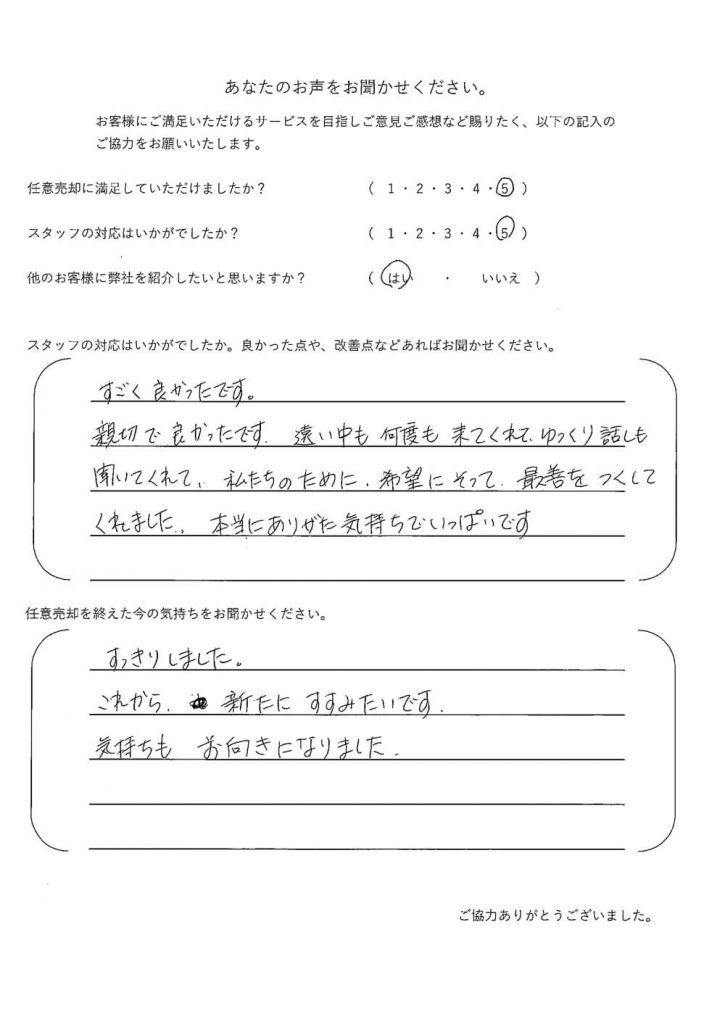 あなたのお声をお聞かせください。
お客様にご満足いただけるサービスを目指しご意見ご感想など賜りたく、以下の記入の
ご協力をお願いいたします。
任意売却に満足していただけましたか? ( 1・2・3・4・5 )
スタッフの対応はいかがでしたか? ( 1・2・3・4・5 )
他のお客様に弊社を紹介したいと思いますか? ( はい ・ いいえ )
スタッフの対応はいかがでしたか。良かった点や、改善点などあればお聞かせください。
すごく良かったです。
親切で良かったです. 遠い中も何度も来てくれて、ゆっくり話しも
聞いてくれて、私たちのために、希望にそって、最善をつくして
くれました。本当にありがた気持ちでいっぱいです
任意売却を終えた今の気持ちをお聞かせください。
すっきりしました。
これから、新たにすすみたいです.
気持ちも お向きになりました.
ご協力ありがとうございました。